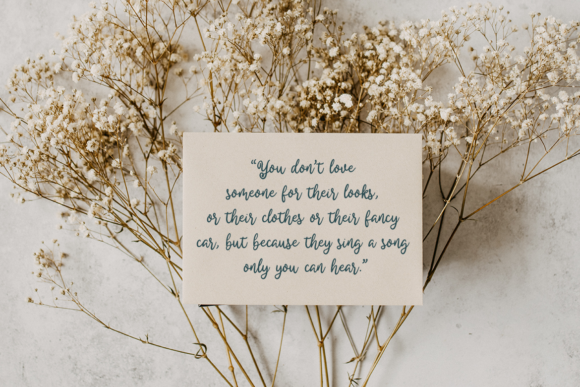 “You don’t love
someone for their looks,
or their clothes or their fancy
car, but because they sing a song
only you can hear.”